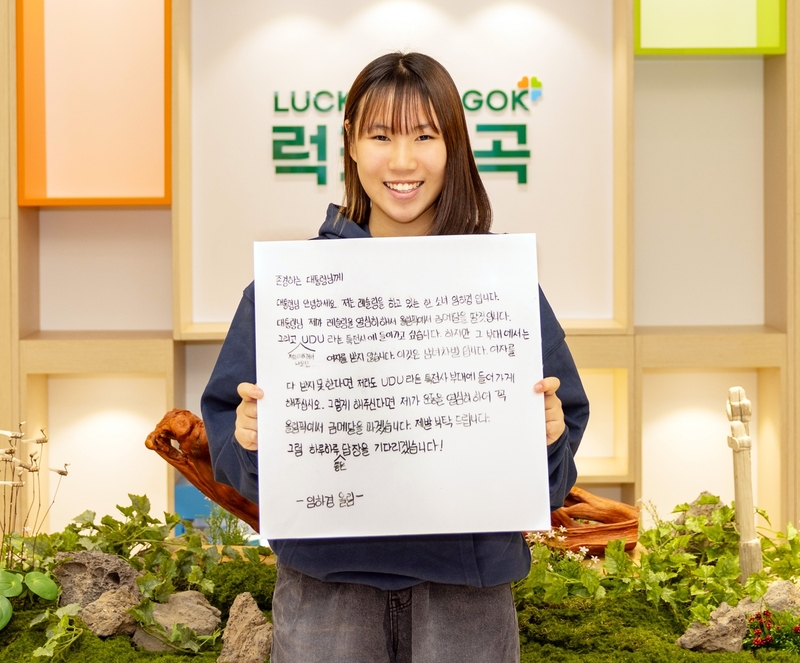 LUCK GOK
럭 곡
존경하는 대통령님께
대통령님 안녕하세요. 저는 레슬링을 하고 있는 한 소녀 임하경 입니다.
대통령님 제가 레슬링을 열심히 해서 올림픽에서 금메달을 딸것입니다.
그리고 UDU 라는 특전사에 들어가고 싶습니다. 하지만 그 부대에서는
여자를 받지 않습니다. 이것은 남녀차별 입니다. 여자를
다 받지 못한다면 저라도 UDU 라는 특전사 부대에 들어가게
해주십시오. 그렇게 해주신다면 제가 운동을 열심히 하여 꼭
올림픽에서 금메달을 따겠습니다. 제발 부탁 드립니다.
그럼 하루하루 답장을 기다리겠습니다!
- 임하경 올림 -